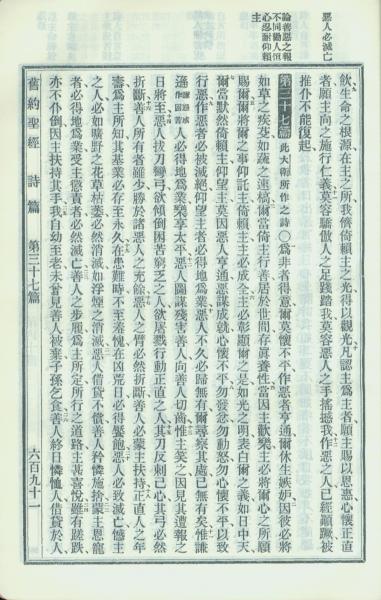 惡人必滅亡
論善惡之報
不同勸人恒
心忍耐仰賴
主
飲生命之根源在主之所我儕倚賴主之光得以觀光凡認主爲主者願主賜以恩惠心懷正直
者願主向之施行仁義莫容驕傲人之足踐踏我莫容惡人之手搖撼我作惡之人已經顚蹶被
推仆不能復起
第三十七篇 此大衞所作之詩〇爲非者得意爾莫懷不平作惡者亨通爾休生嫉妬因彼必將
如草之疾芟如蔬之速槁爾當倚主行善居於世間存眞養性當因主歡樂主必將爾心之所願
賜爾爾將爾之事仰託主倚賴主主必成全主必彰顯爾之是如光之昇表白爾之義如日中天
爾當默然倚賴主仰望主莫因惡人亨通惡謀成就心懷不平勿發忿勿動怒勿心懷不平以致
行惡作惡者必被滅絕仰望主者必得地爲業惡人不久必歸無有爾尋察其處已無有矣惟謙
遜人必得地爲業樂享太平惡人圖謀殘害善人向善人切齒惟主笑之因見其遭報之
日將至惡人拔刀彎弓欲傾倒困苦窮乏之人欲屠戮行動正直之人其刀反刺己心其弓必然
折斷善人所有者雖少勝於諸惡人之充餘惡人之臂必然折斷善人必蒙主扶持正直人之年
壽爲主所知其基業必存至永久在患難時不至羞愧在凶荒日必得饜飽惡人必致滅亡憾主
之人必如曠野之花草枯萎必然消滅如浮煙之消滅惡人借貸不償善人矜憐施捨蒙主恩寵
者必得地爲業受主懲責者必然滅亡善人之步履爲主所定所行之道路主甚喜悅雖有蹉跌
亦不仆倒因主扶持其手我自幼至老未嘗見善人被棄子孫乞食善人終日憐恤人借貸於人
舊約聖經 詩篇 第三十七篇 六百九十一